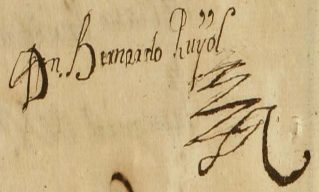 Dn. Hernando Ruyol